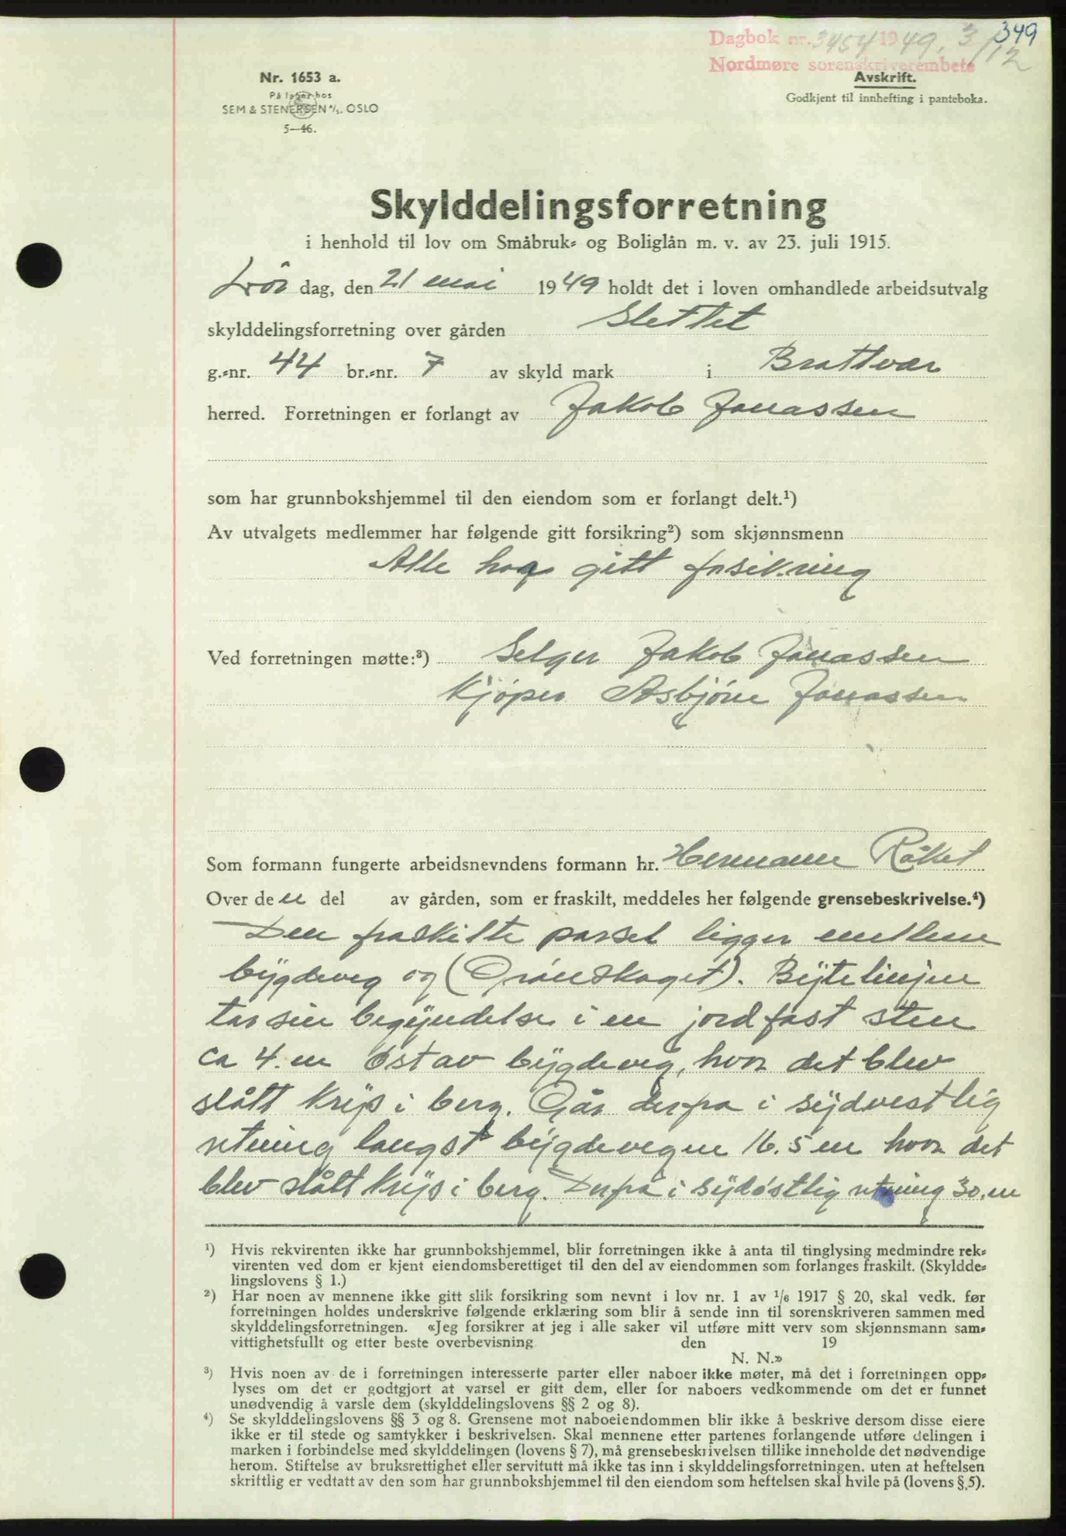 349
Dagbok nr. 3454 1949. 3/12
Nordmøre sorenskriverembete
Nr. 1653 a.
På lager hos
SEM & STENERSEN A/S. OSLO
5—46.
Avskrift.
Godkjent til innhefting i panteboka.
Skylddelingsforretning
i henhold til lov om Småbruk- og Boliglån m. v. av 23. juli 1915.
Lør dag, den 21 mai 1949 holdt det i loven omhandlede arbeidsutvalg
skylddelingsforretning over gården Slettet
g.-nr. 44 br.-nr. 7 av skyld mark i Brattvær
herred. Forretningen er forlangt av Jakob Jonassen
som har grunnbokshjemmel til den eiendom som er forlangt delt.¹)
Av utvalgets medlemmer har følgende gitt forsikring²) som skjønnsmenn
Alle har gitt forsikring
Ved forretningen møtte:³) Selger Jakob Jonassen
Kjøper Asbjørn Jonassen
Som formann fungerte arbeidsnevndens formann hr. Hermann Råket
Over den del av gården, som er fraskilt, meddeles her følgende grensebeskrivelse.⁴)
Den fraskilte parsel ligger mellem
bygdeveg og (Grønskaget). Bytelinjen
tar sin begyndelse i en jordfast sten
ca 4. m øst av bygdeveg, hvor det blev
slått krys i berg. Går derfra i sydvestlig
retning langst bygdevegen 16.5 m hvor det
blev slått kryss i berg. Derfra i sydøstlig retning 30. m
¹) Hvis rekvirenten ikke har grunnbokshjemmel, blir forretningen ikke å anta til tinglysing medmindre rek-
virenten ved dom er kjent eiendomsberettiget til den del av eiendommen som forlanges fraskilt. (Skyldde-
lingslovens § 1.)
²) Har noen av mennene ikke gitt slik forsikring som nevnt i lov nr. 1 av 1/6 1917 § 20, skal vedk. før
forretningen holdes underskrive følgende erklæring som blir å sende inn til sorenskriveren sammen med
skylddelingsforretningen. «Jeg forsikrer at jeg i alle saker vil utføre mitt verv som skjønnsmann sam-
vittighetsfullt og etter beste overbevisning den 19
N. N.»
³) Hvis noen av de i forretningen interesserte parter eller naboer ikke møter, må det i forretningen opp-
lyses om det er godtgjort at varsel er gitt dem, eller for naboers vedkommende om det er funnet
unødvendig å varsle dem (skylddelingslovens §§ 2 og 8).
⁴) Se skylddelingslovens §§ 3 og 8. Grensene mot naboeiendommen blir ikke å beskrive dersom disse eiere
ikke er til stede og samtykker i beskrivelsen. Skal mennene etter partenes forlangende utføre delingen i
marken i forbindelse med skylddelingen (lovens § 7), må grensebeskrivelsen tillike inneholde det nødvendige
herom. Stiftelse av bruksrettighet eller servitutt må ikke tas inn i skylddelingsforretningen, uten at heftelsen
skriftlig er vedtatt av den som har grunnbokshjemmel til den eiendom som heftelsen skal hvile på (lovens § 5).